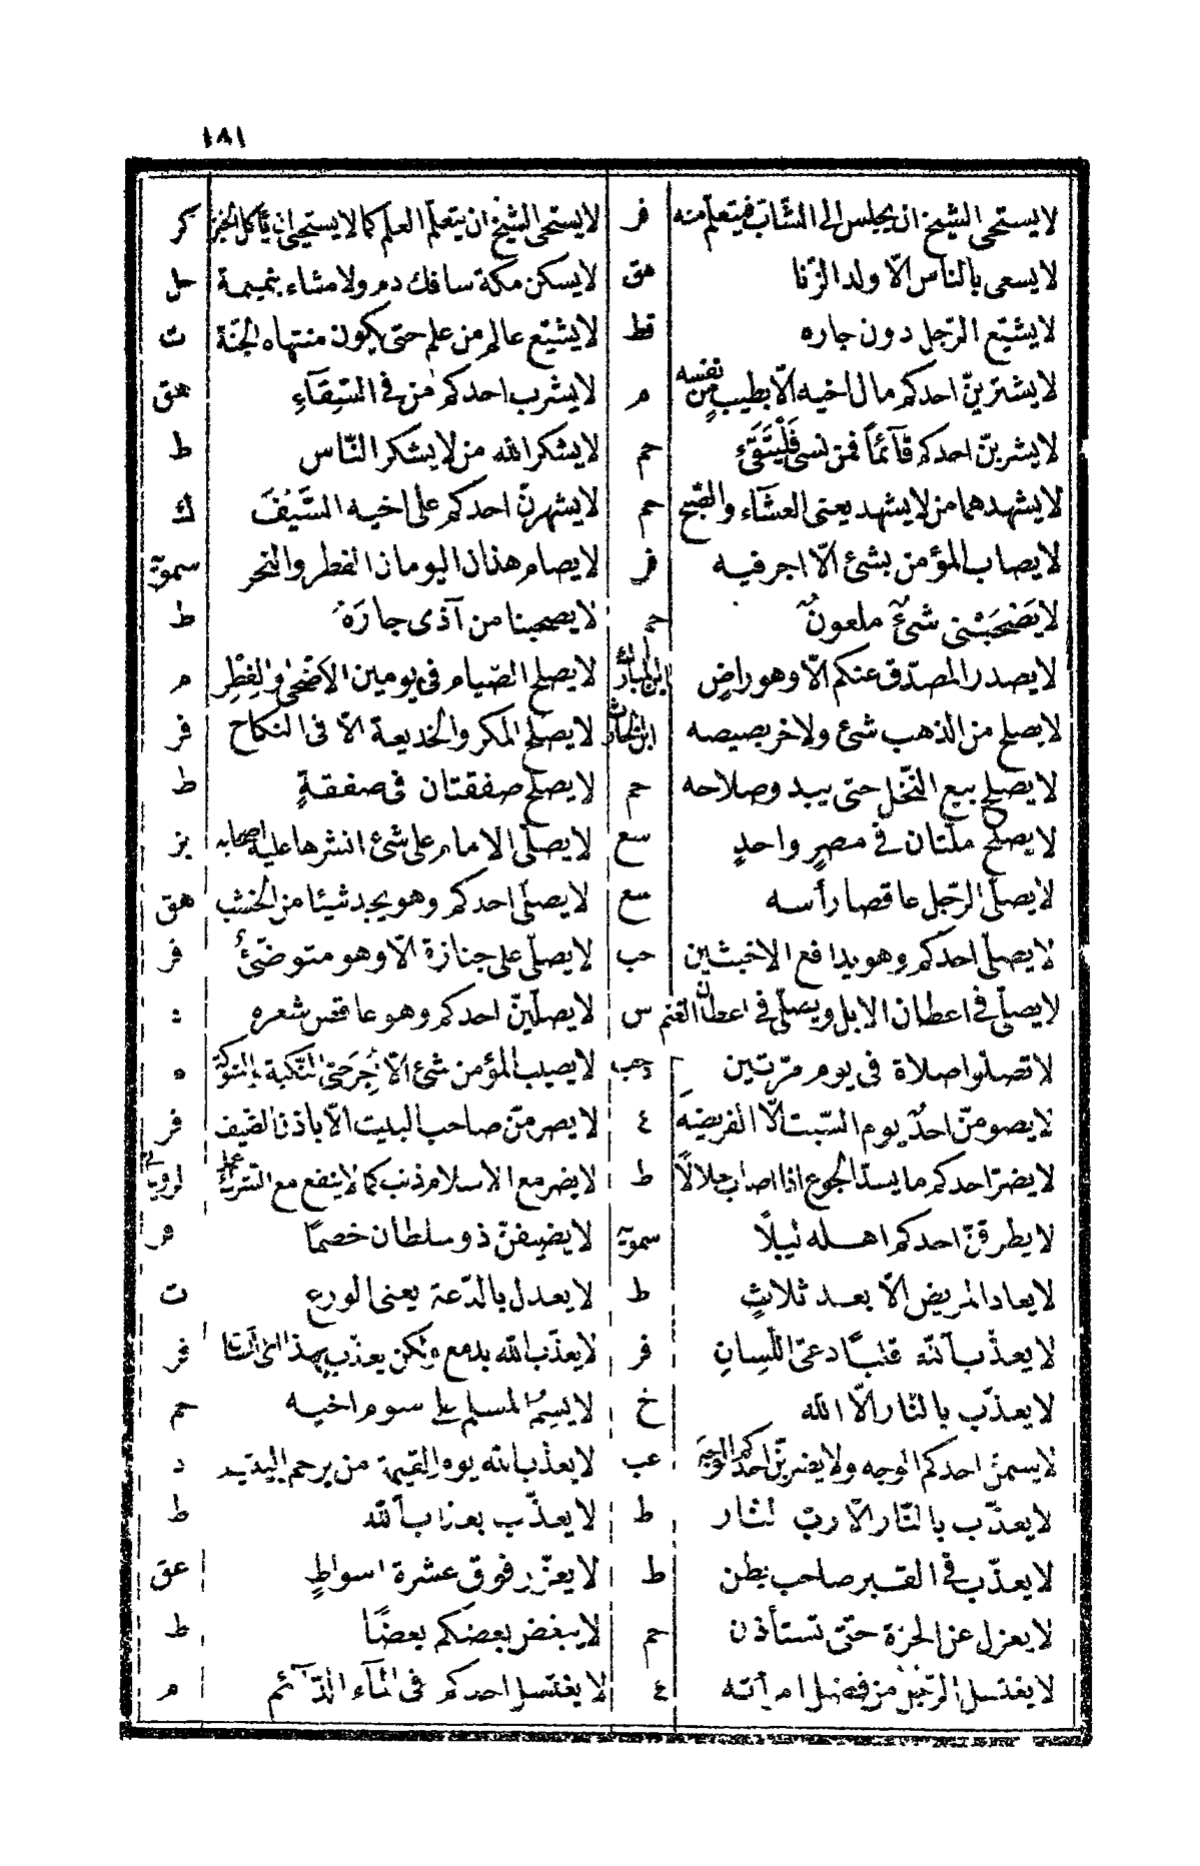 ١٨١
لا يستحى الشيخ ان يجلس الى الشاب فيتعلم منه فر لا يستحى الشيخ ان يتعلّم العلم كما لا يستحيى ان يأكل الخبز كر
لا يسعى بالناس الّا ولد الزّنا هق لا يسكن مكة سافك دم ولا مشاء بنميمة حل
لا يشبّع الرّجل دون جاره قط لا يشبّع عالم من علم حتى يكون منتهاه الجنّة ت
لا يشترينّ احدكم مال اخيه الّا بطيب من نفسه م لا يشرب احدكم من فى السّقَآءِ هق
لا يشربنّ احدكم قآئماً فمن نسى فَلْيَتَقَىء حم لا يشكر الله من لا يشكر النّاس ط
لا يشهدهما من لا يشهد يعنى العشآء والصّبح حم لا يشهرنّ احدكم على اخيه السَّيْفَ ك
لا يصاب المؤمن بشئ الّا اجر فيه فر لا يصام هذان اليومان الفطر والنحر سمويه
لا يَصْحَبْنى شئٌ ملعونٌ حم لا يصحبنا من آذى جارَهُ ط
لا يصدر المصدّق عنكم الّا وهو راضٍ ابن المبارك لا يصلح الصّيام فى يومين الاضْحٰى والفِطْرِ م
لا يصلح من الذهب شئ ولا خربصيصه ابن لا يصلح المكر والخديعة الّا فى النكاح فر
لا يصلح بيع النّخل حتى يبدو صلاحه حم لا يصلح صفقتان فى صفقةٍ ط
لا يصلح ملّتان فى مصرٍ واحدٍ سع لا يصلّى الامام على شئ انشرها عليه اصحابه بز
لا يصلّى الرّجل عاقصا رأسه سع لا يصلّى احدكم وهو يجد شيئا من الخبث هق
لا يصلّى احدكم وهو يدافع الاخبثين حب لا يصلّى على جنازة الّا وهو متوضّئٌ فر
لا يصلّى فى اعطان الابل ويصلّى فى اعطان الغنم س لا يصلّينّ احدكم وهو عاقص شعره
لا تصلوا صلاة فى يوم مرّتين حب لا يصيب المؤمن شئ الّا اُجِرَ حتى النّكبة ه
لا يصومنّ احدٌ يوم السّبت الّا الفريضه ٤ لا يصومنّ صاحب البيت الّا باذن الضيف فر
لا يضرّ احدكم ما يسدّ الجوع اذا اصاب حلالًا ط لا يضر مع الاسلام ذنب كما لا ينفع مع الشرك عمل
لا يطرقنّ احدكم اهله ليلًا سمويه لا يضيفنّ ذو سلطان خصمًا
لا يعاد المريض الّا بعد ثلاثٍ ط لا يعدل بالدّعة يعنى الورع ت
لا يعذّب الله قلبًا دعىّ اللّسانِ فر لا يعذّب الله بدمع ولكن يعذّب بهذا فر
لا يعذّب بالنار الّا الله خ لا يسِمُ المسلم على سوم اخيه حم
لا يسمنّ احدكم الوجه ولا يضربنّ احدكم الوجه عب لا يعذّب الله يوم القيمة من يرحم اليتيم د
لا يعذّب بالنّار الّا ربّ النار ط لا يعذّب بعذاب الله ط
لا يعذّب فى القبر صاحب بطن ط لا يعزّر فوق عشرة اسواطٍ عق
لا يعزل عن الحرّة حتى تستأذن حم لا يبغض بعضكم بعضًا ط
لا يغتسل الرّجل من فضل امرأته ٤ لا يغتسل احدكم فى المآء الدّآئم م